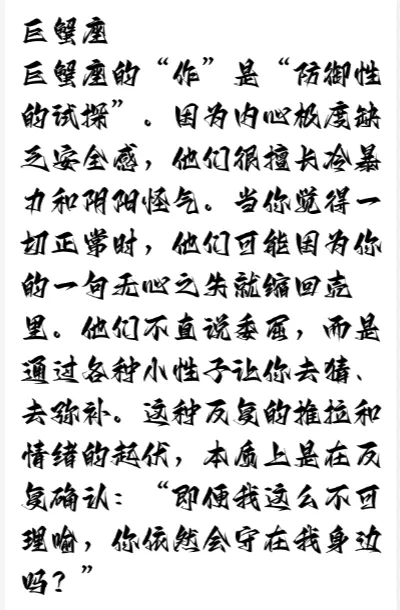 巨蟹座
巨蟹座的“作”是“防御性
的试探”。因为内心极度缺
乏安全感，他们很擅长冷暴
力和阴阳怪气。当你觉得一
切正常时，他们可能因为你
的一句无心之失就缩回壳
里。他们不直说委屈，而是
通过各种小性子让你去猜、
去弥补。这种反复的推拉和
情绪的起伏，本质上是在反
复确认：“即便我这么不可
理喻，你依然会守在我身边
吗？”